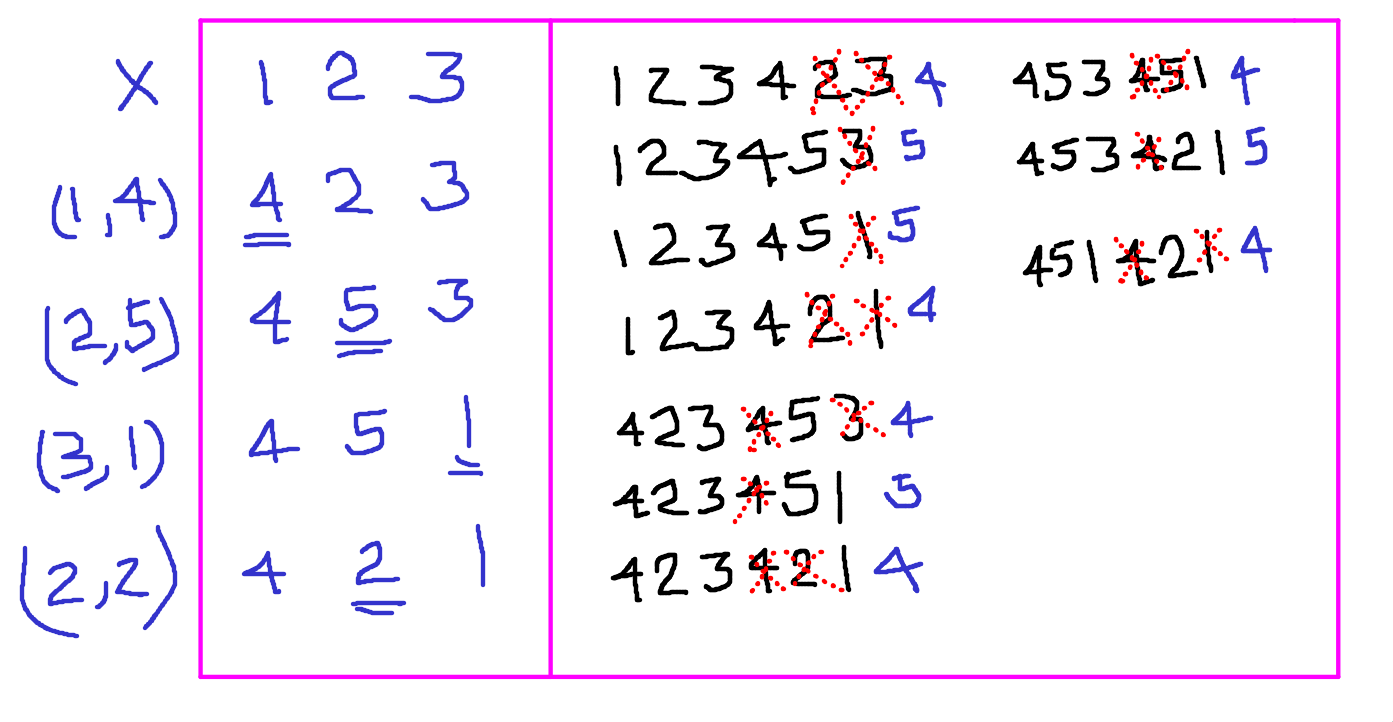 X 1 2 3
(1,4) 4 2 3
(2,5) 4 5 3
(3,1) 4 5 1
(2,2) 4 2 1
1 2 3 4 2 3 4
1 2 3 4 5 3 5
1 2 3 4 5 1 5
1 2 3 4 2 1 4
4 2 3 4 5 3 4
4 2 3 4 5 1 5
4 2 3 4 2 1 4
4 5 3 4 5 1 4
4 5 3 4 2 1 5
4 5 1 4 2 1 4